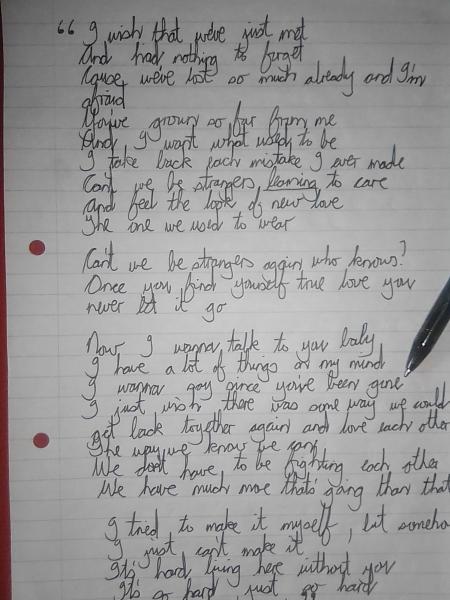 “ I wish that we've just met
And had nothing to forget
Cause we've lost so much already and I'm
afraid
You've grown so far from me
And I want what used to be
I take back each mistake I ever made
Can't we be strangers learning to care
and feel the look of new love
The one we used to wear
Can't we be strangers again who knows?
Once you find yourself true love you
never let it go
Now I wanna talk to you baby
I have a lot of things on my mind
I wanna say since you've been gone
I just wish there was some way we could
get back together again and love each other
The way we know we can
We don't have to be fighting each other
We have much more that's going than that
I tried to make it myself, but someho
I just can't make it
It's hard living here without you
It's so hard, just so hard